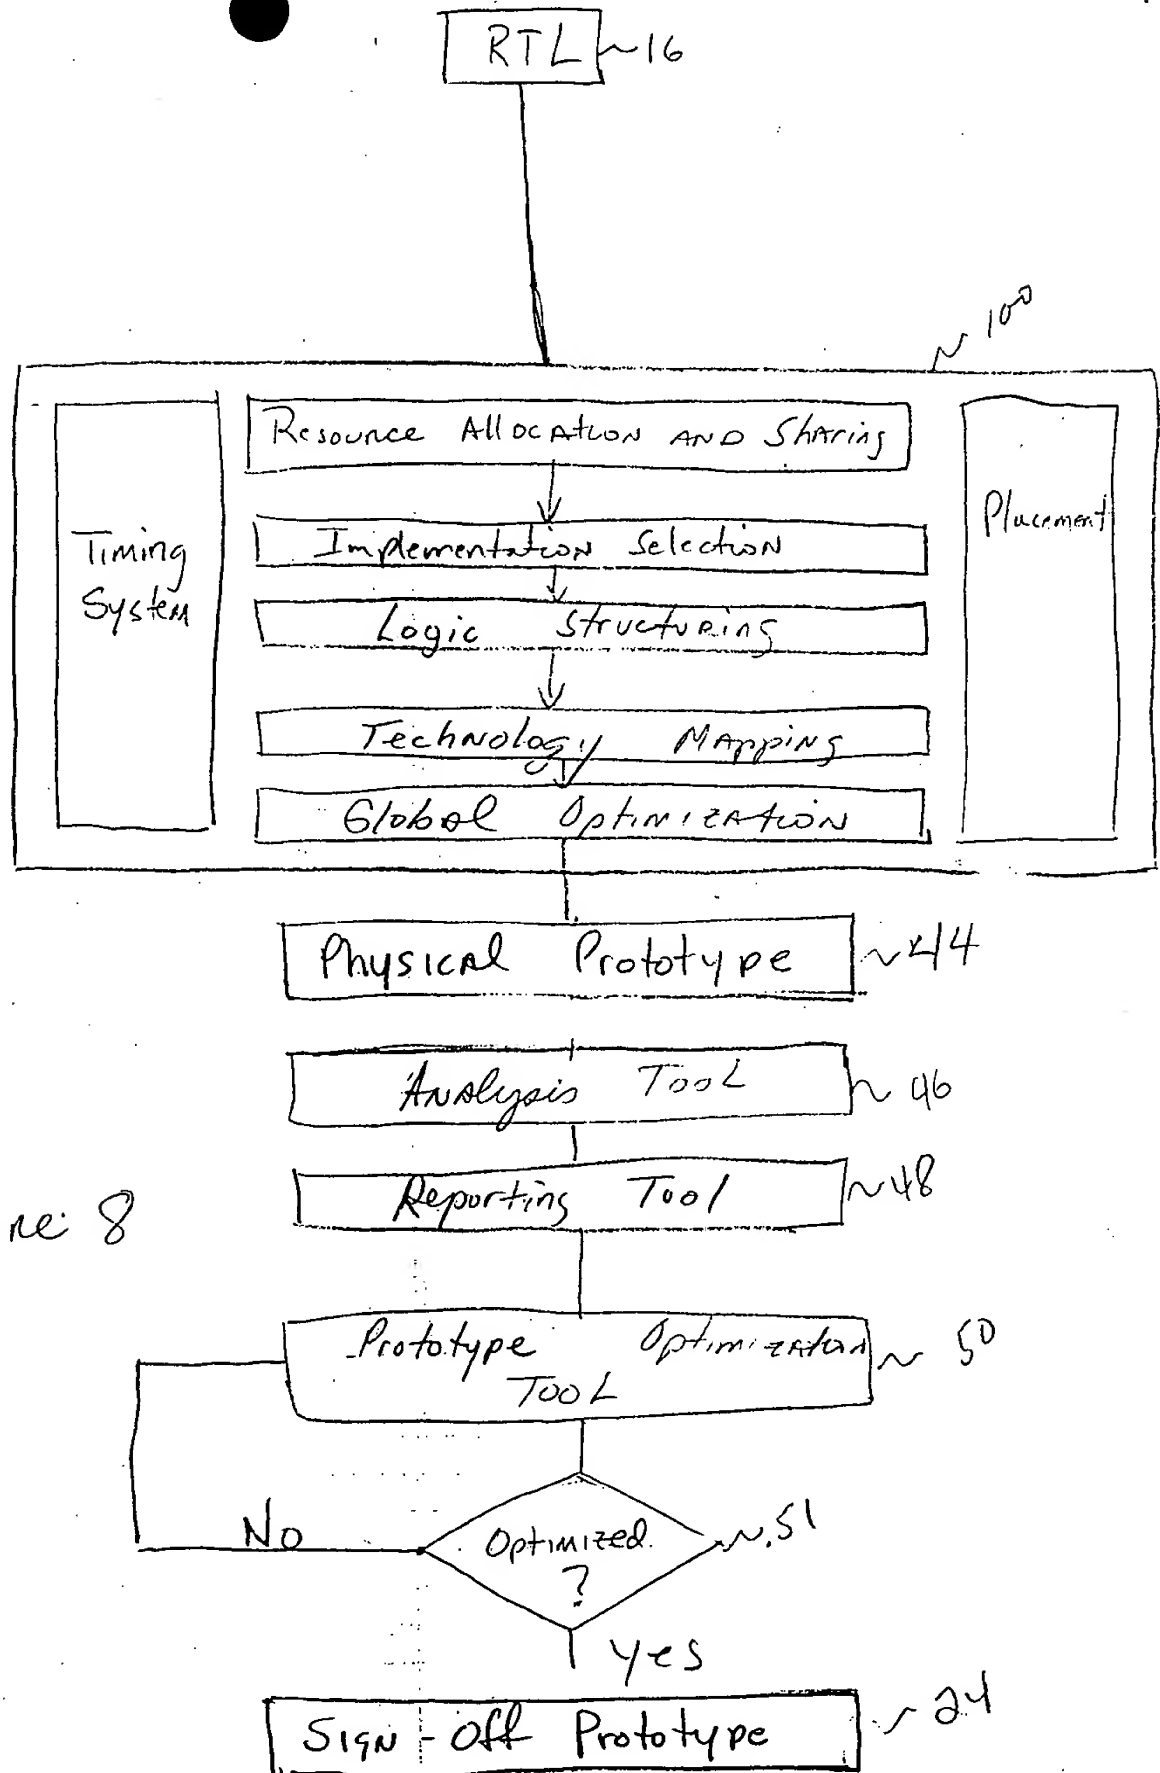 RTL 16
100
Resource Allocation and Sharing
Timing
System
Placement
Implementation Selection
Logic Structuring
Technology Mapping
Global Optimization
Physical Prototype 44
Analysis Tool 46
Reporting Tool 48
re: 8
Prototype Optimization 50
Tool
No
Optimized 51
?
Yes
Sign-Off Prototype 24